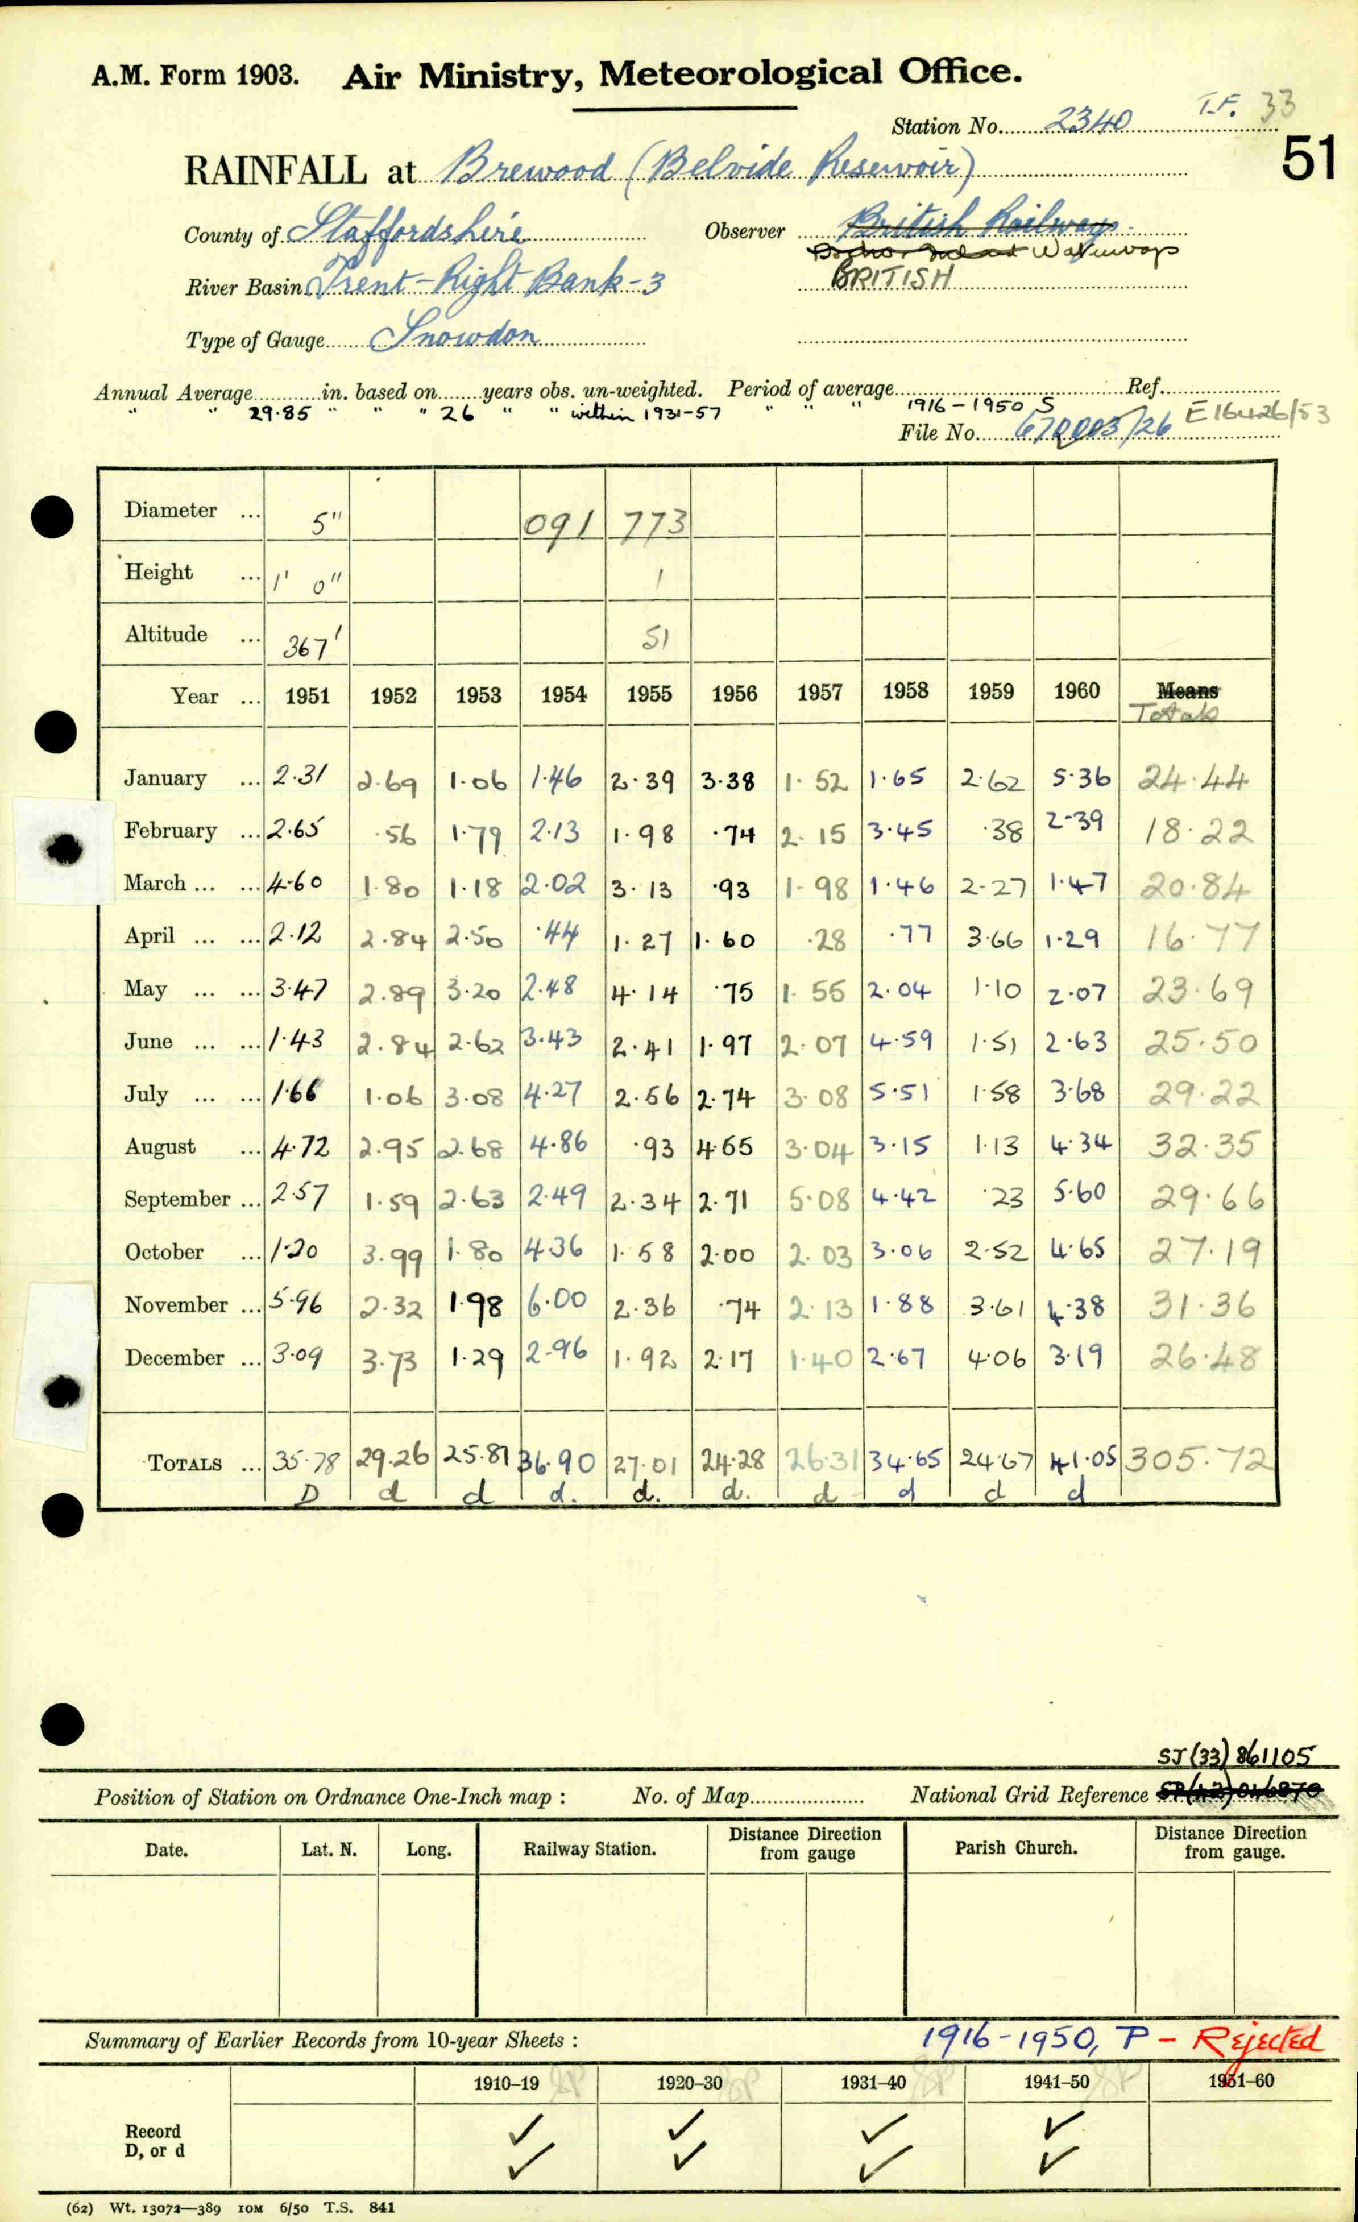 A.M. Form 1903. Air Ministry, Meteorological Office.
T.F. 33
Station No. 2340
51
RAINFALL at Brewood (Belvide Reservoir)
County of Staffordshire Observer British Railways.
Waterways
River Basin Trent-Right Bank-3 BRITISH
Type of Gauge Snowdon
Annual Average in. based on years obs. un-weighted. Period of average Ref.
" " 29.85 " " " 26 " " within 1931-57 " " " 1916-1950 S
File No. 670003/26 E16426/53
Diameter ... 5" 091 773
Height ... 1' 0" 1
Altitude ... 367' 51
Year ... 1951 1952 1953 1954 1955 1956 1957 1958 1959 1960 Means
Totals
January ... 2.31 2.69 1.06 1.46 2.39 3.38 1.52 1.65 2.62 5.36 24.44
February ... 2.65 .56 1.79 2.13 1.98 .74 2.15 3.45 .38 2.39 18.22
March ... ... 4.60 1.80 1.18 2.02 3.13 .93 1.98 1.46 2.27 1.47 20.84
April ... ... 2.12 2.84 2.50 .44 1.27 1.60 .28 .77 3.66 1.29 16.77
May ... ... 3.47 2.89 3.20 2.48 4.14 .75 1.55 2.04 1.10 2.07 23.69
June ... ... 1.43 2.84 2.62 3.43 2.41 1.97 2.07 4.59 1.51 2.63 25.50
July ... ... 1.66 1.06 3.08 4.27 2.56 2.74 3.08 5.51 1.58 3.68 29.22
August ... 4.72 2.95 2.68 4.86 .93 4.55 3.04 3.15 1.13 4.34 32.35
September ... 2.57 1.59 2.63 2.49 2.34 2.71 5.08 4.42 .23 5.60 29.66
October ... 1.20 3.99 1.80 4.36 1.58 2.00 2.03 3.06 2.52 4.65 27.19
November ... 5.96 2.32 1.98 6.00 2.36 .74 2.13 1.88 3.61 4.38 31.36
December ... 3.09 3.73 1.29 2.96 1.92 2.17 1.40 2.67 4.06 3.19 26.48
TOTALS ... 35.78 29.26 25.81 36.90 27.01 24.28 26.31 34.65 24.67 41.05 305.72
D d d d. d. d. d d d d
SJ(33) 861105
Position of Station on Ordnance One-Inch map : No. of Map National Grid Reference SP(42)046870
Date. Lat. N. Long. Railway Station. Distance Direction from gauge Parish Church. Distance Direction from gauge.
Summary of Earlier Records from 10-year Sheets : 1916-1950, P - Rejected
1910–19 1920–30 1931–40 1941–50 1951–60
Record ✓ ✓ ✓ ✓
D, or d ✓ ✓ ✓ ✓
(62) Wt. 13072—389 10M 6/50 T.S. 841